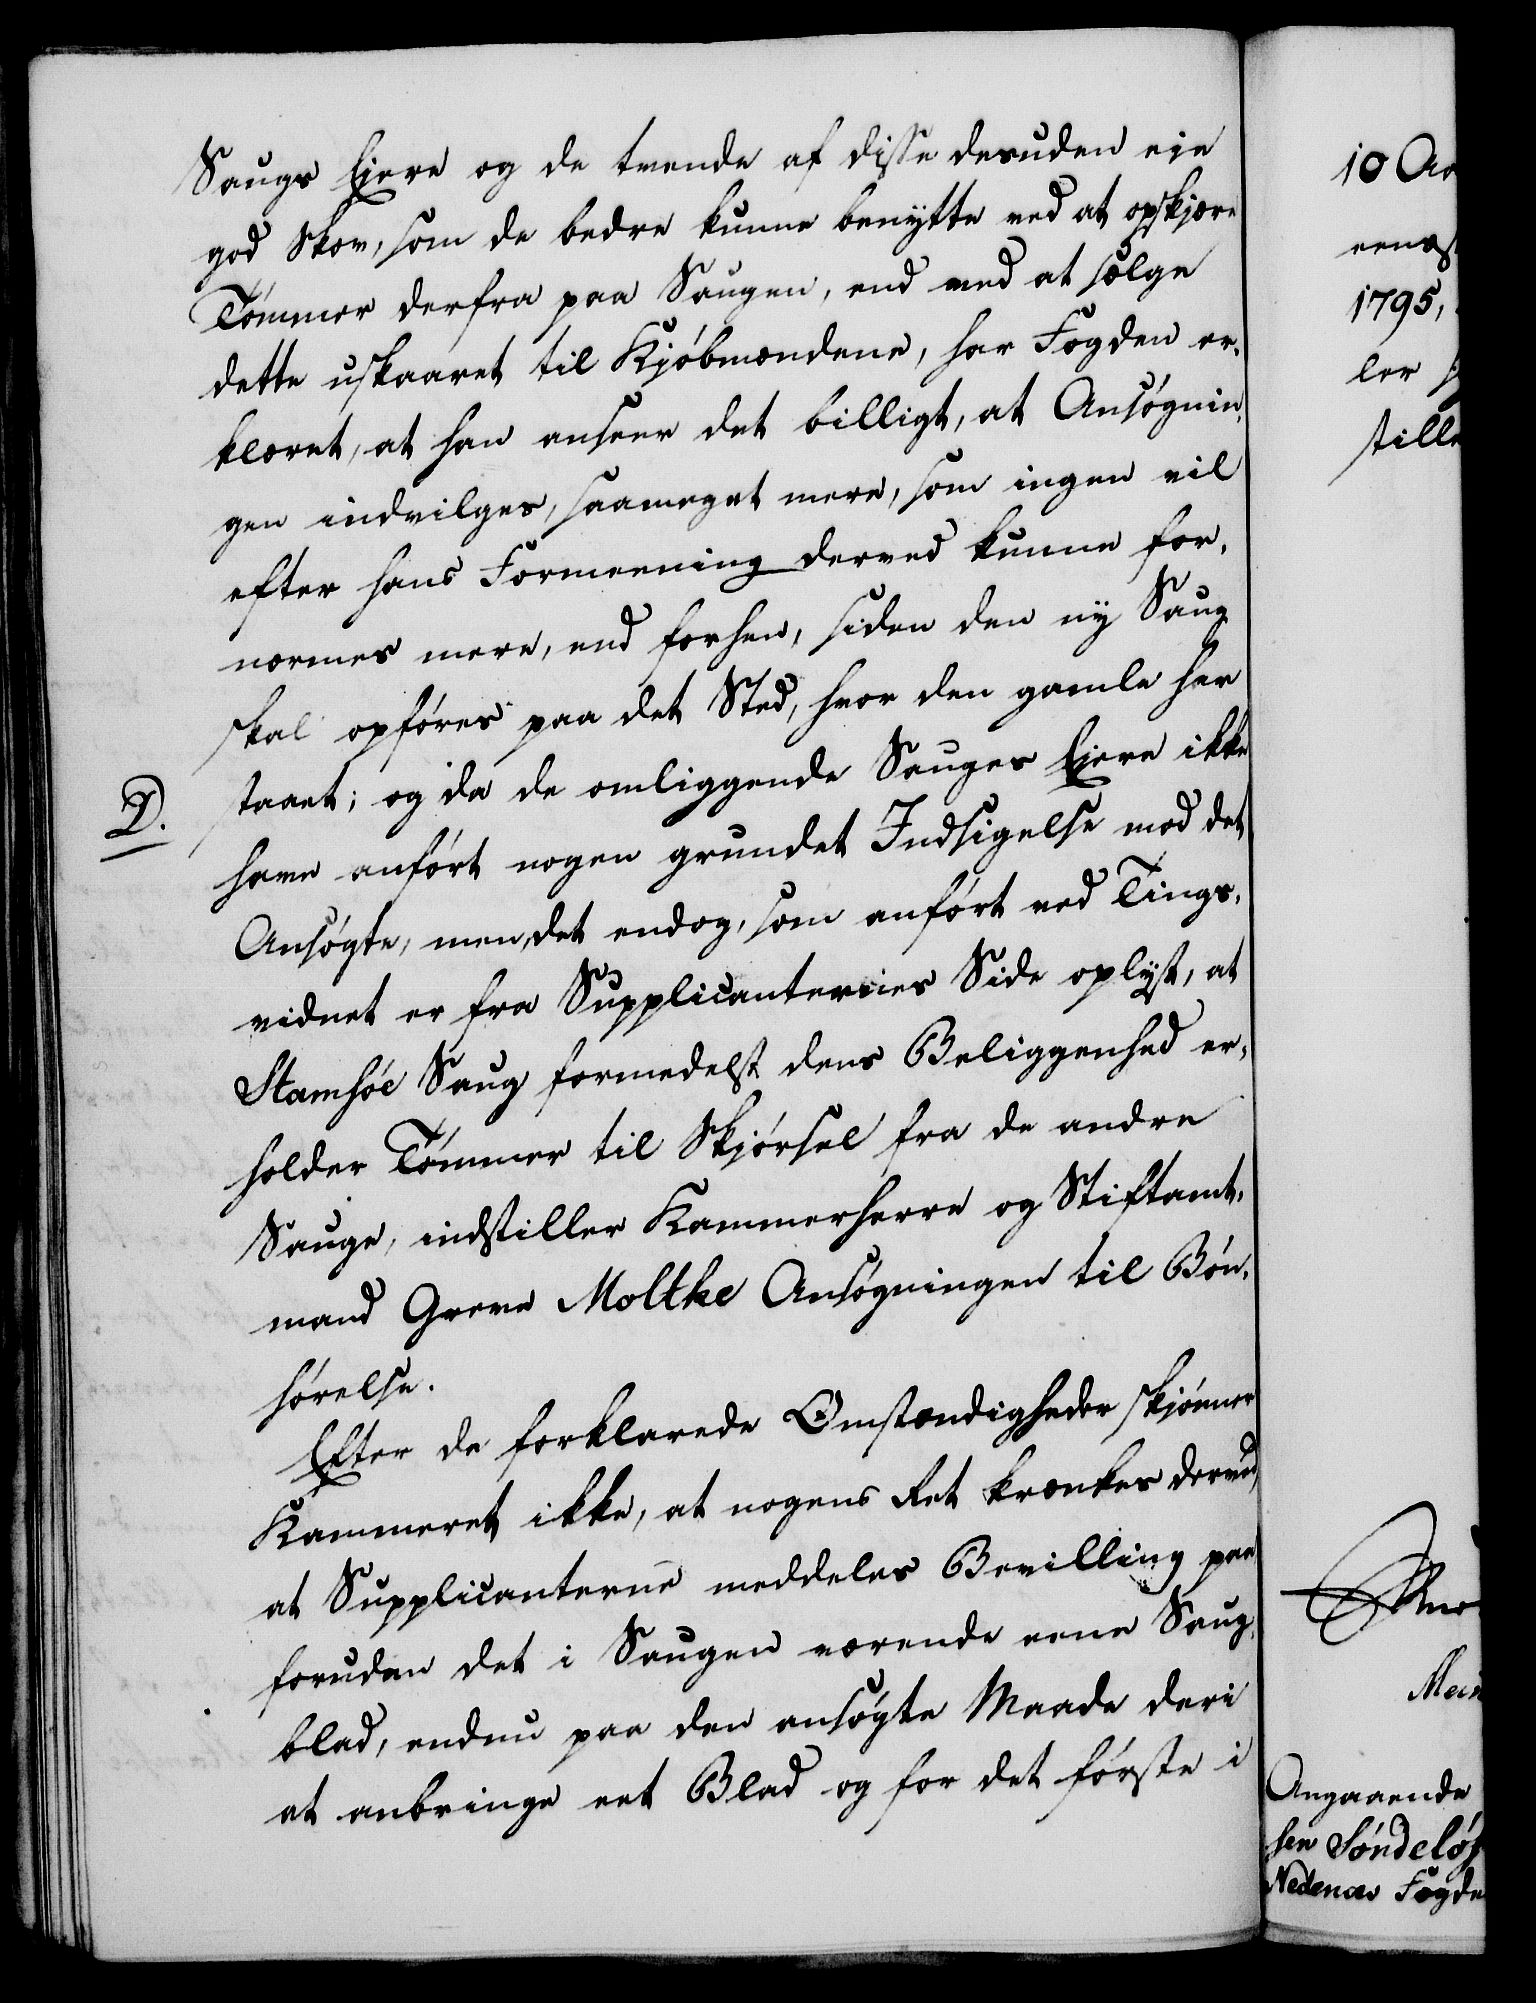 Saugs Ejere og de tvende af disse desuden eje
god Skov, som de bedre kunne benytte ved at opskjære
Tømmer derfra paa Saugen, end ved at sælge
dette uskaaret til Kjøbmændene, har Fogden er-
klæret, at han anseer det billigt, at Ansøgnin-
gen indvilges, saameget mere, som ingen vil
efter hans Formeening derved kunne for-
nærmes mere, end forhen, siden den ny Saug
skal opføres paa det Sted, hvor den gamle har
D.
staaet; og da de omliggende Sauges Ejere ikke
have anført nogen grundet Indsigelse mod det
Ansøgte, men det endog, som anført ved Tings-
vidnet er fra Supplicanternes Side oplyst, at
Stamsøe Saug formedelst dens Beliggenhed er-
holder Tømmer til Skjørsel fra de andre
Sauge, indstiller Kammerherre og Stiftamt-
mand Greve Moltke Ansøgningen til Bøn-
hørelse.
Efter de forklarede Omstændigheder skjønner
Kammeret ikke, at nogens Ret krænkes derved,
at Supplicanterne meddeles Bevilling paa
foruden det i Saugen værende eene Saug-
blad, endnu paa den ansøgte Maade deri
at anbringe eet Blad og for det første i
10
1795,
ler
stille
Angaaende
sen Søndeløf
Nedenæs Fogde